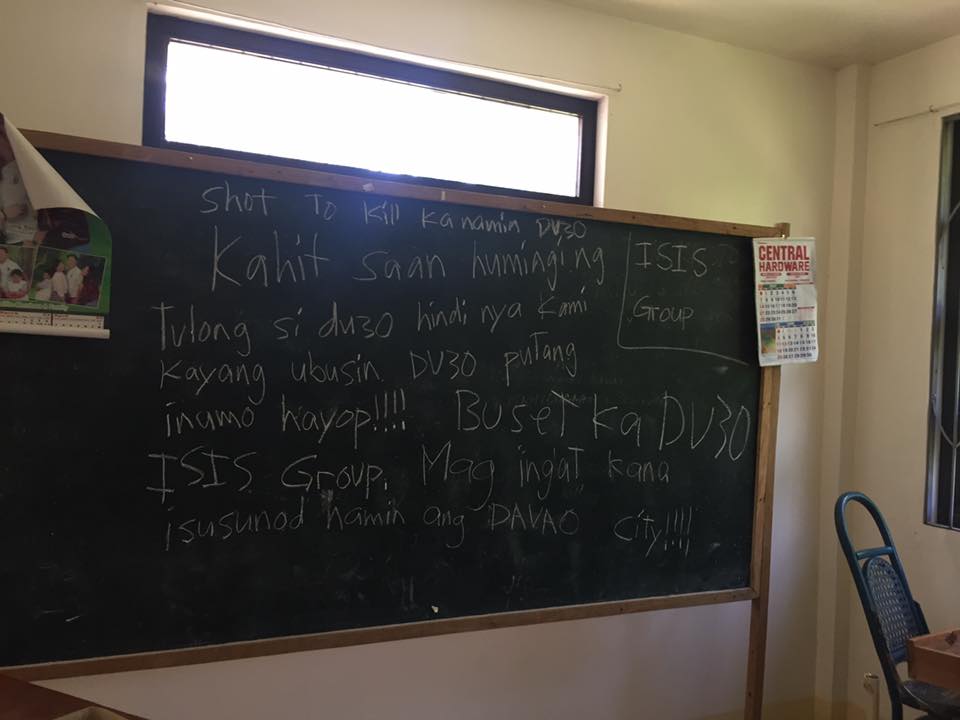 shot To Kill Ka namin DU30
Kahit saan humingi ng
Tulong si du30 hindi nya kami
kayang ubusin DU30 putang
inamo hayop!!!! Buset ka DU30
ISIS Group. Mag ingat kana
isusunod namin ang DAVAO city!!!!
ISIS
Group
CENTRAL
HARDWARE